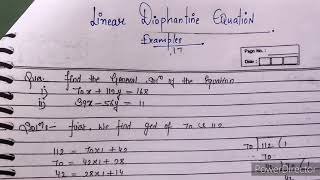 Linear Diophantine Equation
Examples
Page No.:
Date:
Ques:- find the General Sol^n of the Equation
i) 70x + 112y = 168
ii) 39x - 56y = 11
Sol^n:- first, we find gcd of 70 & 112
112 = 70x1 + 42
70 = 42x1 + 28
42 = 28x1 + 14
70 112 (1
70